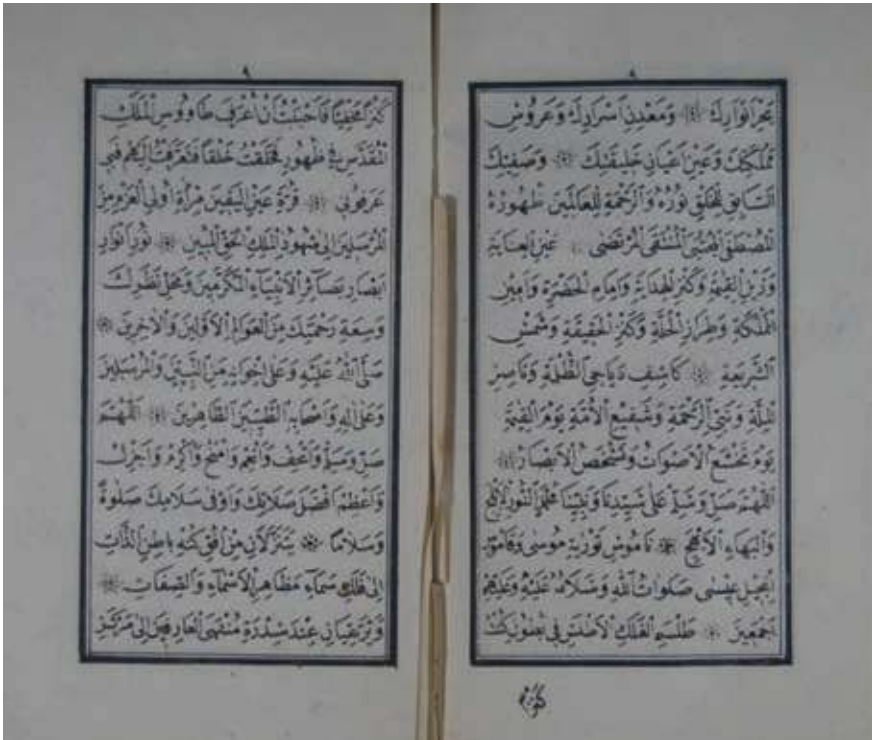 ٨
بحر انوارك ومعدن اسرارك وعروس
مملكتك وعين اعيان خليقتك وصفيك
السابق للخلق نوره والرحمة للعالمين ظهوره
المصطفى المجتبى المنتقى المرتضى عين العناية
وزين القيمة وكنز الهداية وامام الحضرة وامين
المملكة وطراز الحلة وكنز الحقيقة وشمس
الشريعة كاشف دياجي الظلمة وناصر
الملة ونبي الرحمة وشفيع الامة يوم القيمة
يوم تخشع الاصوات وتشخص الابصار
اللهم صل وسلم على سيدنا ونبينا محمد النور الابلج
والبهاء الابهج ناموس تورية موسى وقاموس
انجيل عيسى صلوات الله وسلامه عليه وعليهم
اجمعين طلسم الفلك الاطلس في بطون كنت
٩
كنزا مخفيا فاحببت ان اعرف طاووس الملك
المقدس في ظهور فخلقت خلقا فتعرفت اليهم فبي
عرفوني قرة عين اليقين مرآة اولي العزم من
المرسلين الى شهود الملك الحق المبين نور انوار
ابصار بصائر الانبياء المكرمين ومحل نظرك
وسعة رحمتك من العوالم الاولين والاخرين
صلى الله عليه وعلى اخوانه من النبيين والمرسلين
وعلى اله واصحابه الطيبين الطاهرين اللهم
صل وسلم واتحف وانعم وامنح واكرم واجزل
واعظم افضل صلاتك واوفى سلامك صلوة
وسلاما يتنزلان من افق كنه باطن الذات
الى فلك سماء مظاهر الاسماء والصفات
ويرتقيان عند سدرة منتهى العارفين الى مركز